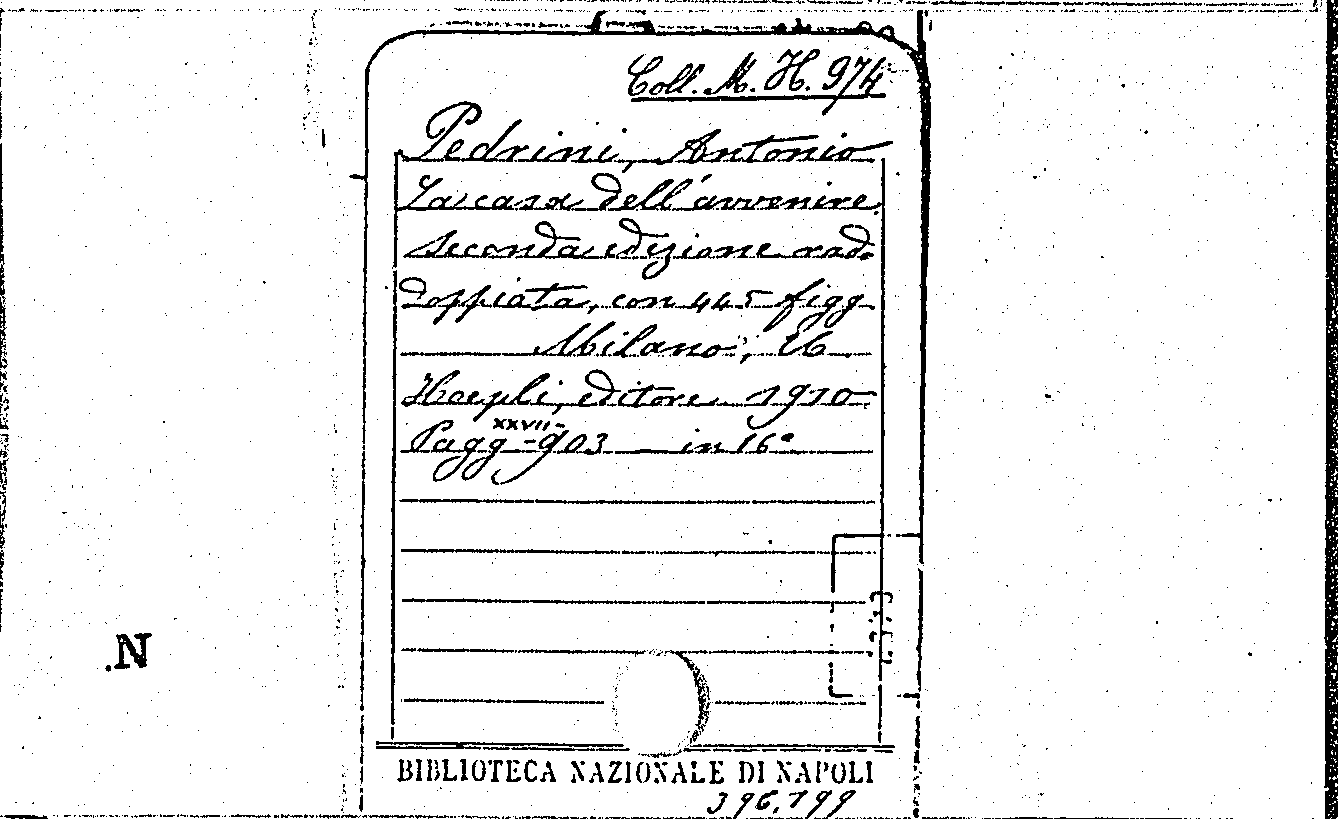 Coll. M. H. 974
Pedrini, Antonio
La casa dell'avvenire
seconda edizione rad-
doppiata, con 445 figg
Milano, U
Hoepli, editore 1910
Pagg XXVII-903 in 16°
.N
BIBLIOTECA NAZIONALE DI NAPOLI
396,199